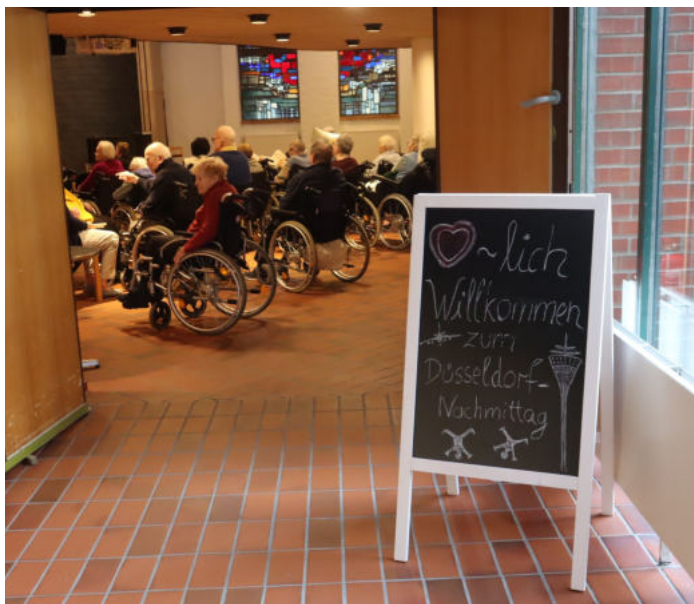 ~lich
Willkommen
zum
Düsseldorf-
Nachmittag